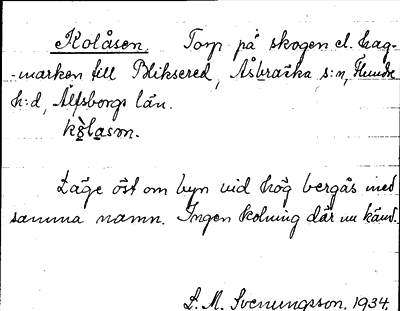 Kolåsen. Torp på skogen el. hag-
-marken till Bliksered, Åsbräcka s:n, Flundre
h:d, Älfsborgs län.
kò̱la̱sm.
Läge öst om byn vid hög bergås med
samma namn. Ingen kolning där nu känd.
S. M. Svenungsson. 1934.